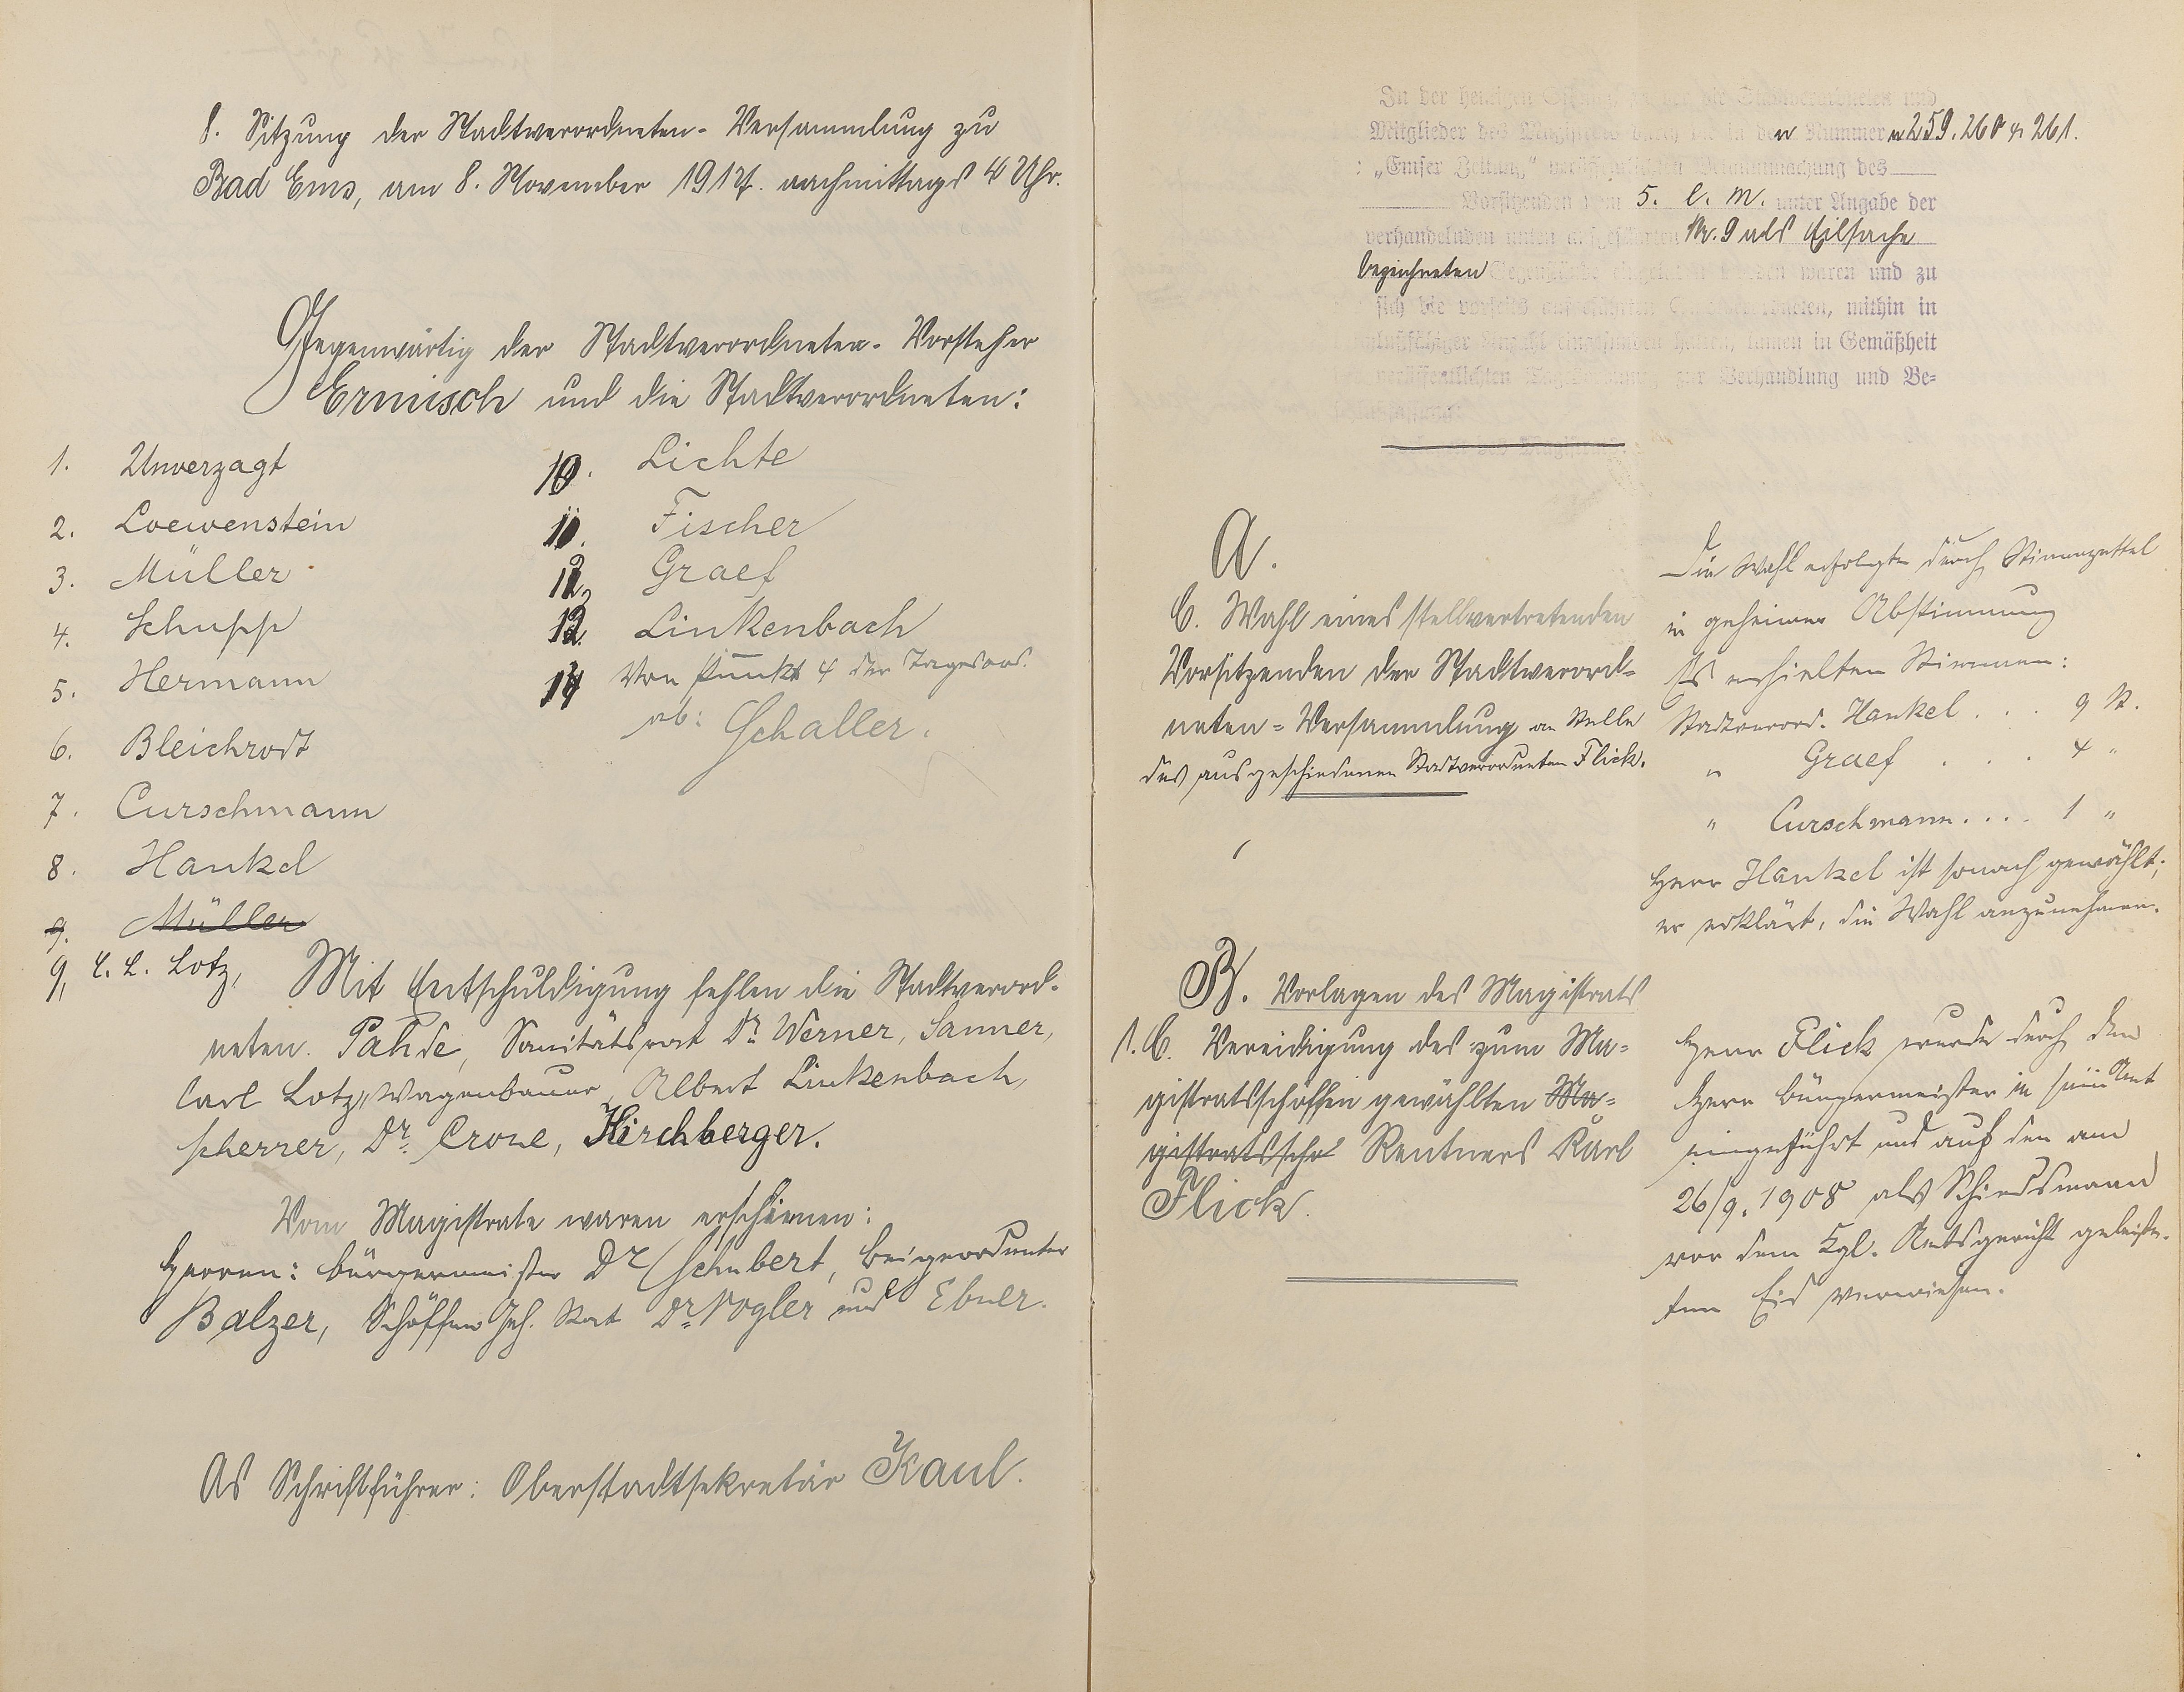 8. Sitzung der Stadtverordneten-Versammlung zu
Bad Ems, am 8. November 1917. nachmittags 4 Uhr.
Gegenwärtig der Stadtverordneten-Vorsteher
Ermisch und die Stadtverordneten:
1. Unverzagt
2. Loewenstein
3. Müller
4. Schupp
5. Hermann
6. Bleichrodt
7. Curschmann
8. Hankel
9. Müller
9, C. L. Lotz,
10. Lichte
11. Fischer
12, Graef
13. Linkenbach
14 Von Punkt 4 der Tagesord.
ab: Schaller.
Mit Entschuldigung fehlen die Stadtverord-
neten. Pahde, Sanitätsrat Dr. Werner, Sanner,
Carl Lotz, Wagenbauer, Albert Linkenbach,
Scherrer, Dr. Crone, Kirchberger.
Vom Magistrate waren erschienen:
Herren: Bürgermeister Dr Schubert, Beigeordneter
Balzer, Schöffen Geh. Rat Dr. Vogler und Ebner.
Als Schriftführer: Oberstadtsekretär Kaul.
In der heutigen die Stadtverordneten und
Mitglieder des Magistrats durch die in den Nummern 259. 260 & 261.
„Emser Zeitung" veröffentlichten Bekanntmachung des
Vorsitzenden vom 5. l. M. unter Angabe der
verhandelnden unten aufgeführten Nr. 9 als Eilsache
bezeichneten Gegenstände eingeladen worden waren und zu
sich die vorseits aufgeführten Stadtverordneten, mithin in
beschlußfähiger Anzahl eingefunden hatten, kamen in Gemäßheit
veröffentlichten Tagesordnung zur Verhandlung und Be-
schlußfassung:
A.
C. Wahl eines stellvertretenden
Vorsitzenden der Stadtverord-
neten-Versammlung an Stelle
des ausgeschiedenen Stadtverordneten Flick.
Die Wahl erfolgte durch Stimmzettel
in geheimer Abstimmung
Es erhielten Stimmen:
Stadtverord. Hankel . . . 9 St.
" Graef . . . 4 "
" Curschmann . . . . 1 "
Herr Hankel ist sonach gewählt;
er erklärt, die Wahl anzunehmen.
B. Vorlagen des Magistrats
1. C. Vereidigung des zum Ma-
gistratsschöffen gewählten Ma-
gistratsschö Rentners Karl
Flick.
Herr Flick wurde durch den
Herrn Bürgermeister in sein Amt
eingeführt und auf den am
26/9. 1908 als Schiedsmann
vor dem Kgl. Amtsgericht geleiste-
ten Eid verwiesen.